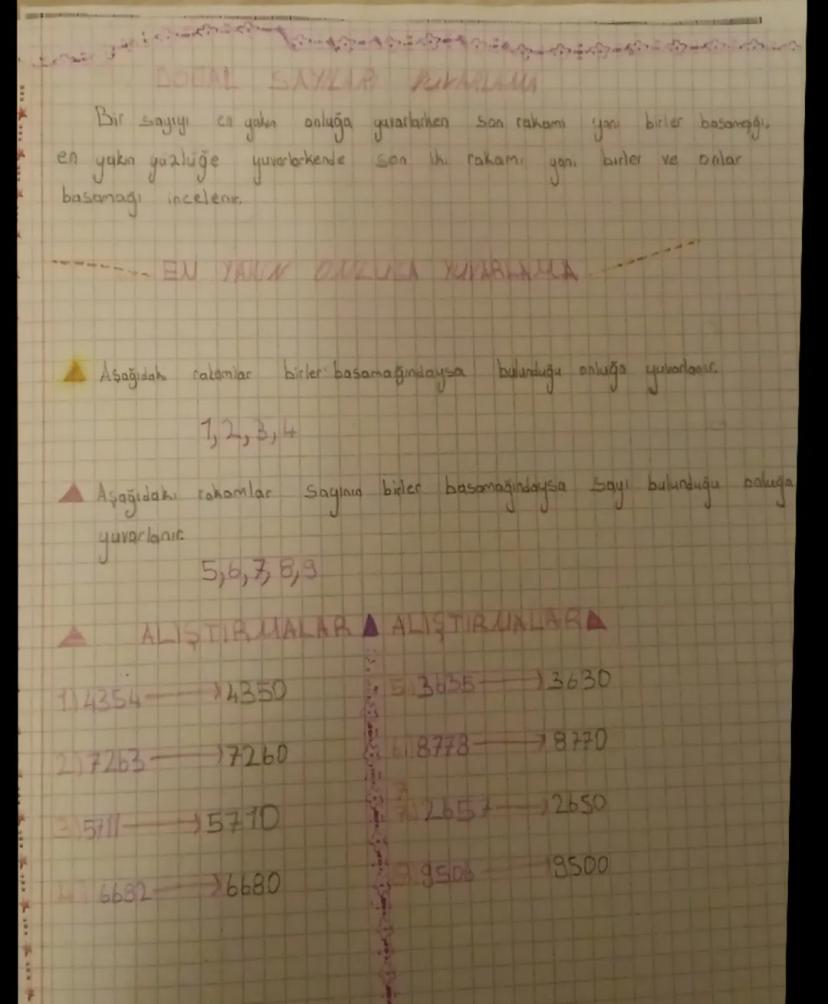 DOĞAL SAYILAR YUVARLAMA
Bir sayıyı en yakın onluğa yuvarlarken son rakamı yani birler basamağı,
en yakın yüzlüğe yuvarlarkende son iki rakamı yani birler ve onlar
basamağı incelenir.
EN YAKIN ONLUĞA YUVARLAMA
Aşağıdaki rakamlar birler basamağındaysa bulunduğu onluğa yuvarlanır.
1, 2, 3, 4
Aşağıdaki rakamlar sayının birler basamağındaysa sayı bulunduğu onluğa
yuvarlanır.
5, 6, 7, 8, 9
ALIŞTIRMALAR ALIŞTIRMALAR
1) 4354 → 4350
2) 7263 → 7260
3) 5711 → 5710
4) 6682 → 6680
5) 3635 → 3630
6) 8778 → 8770
7) 2657 → 2650
9506 → 9500